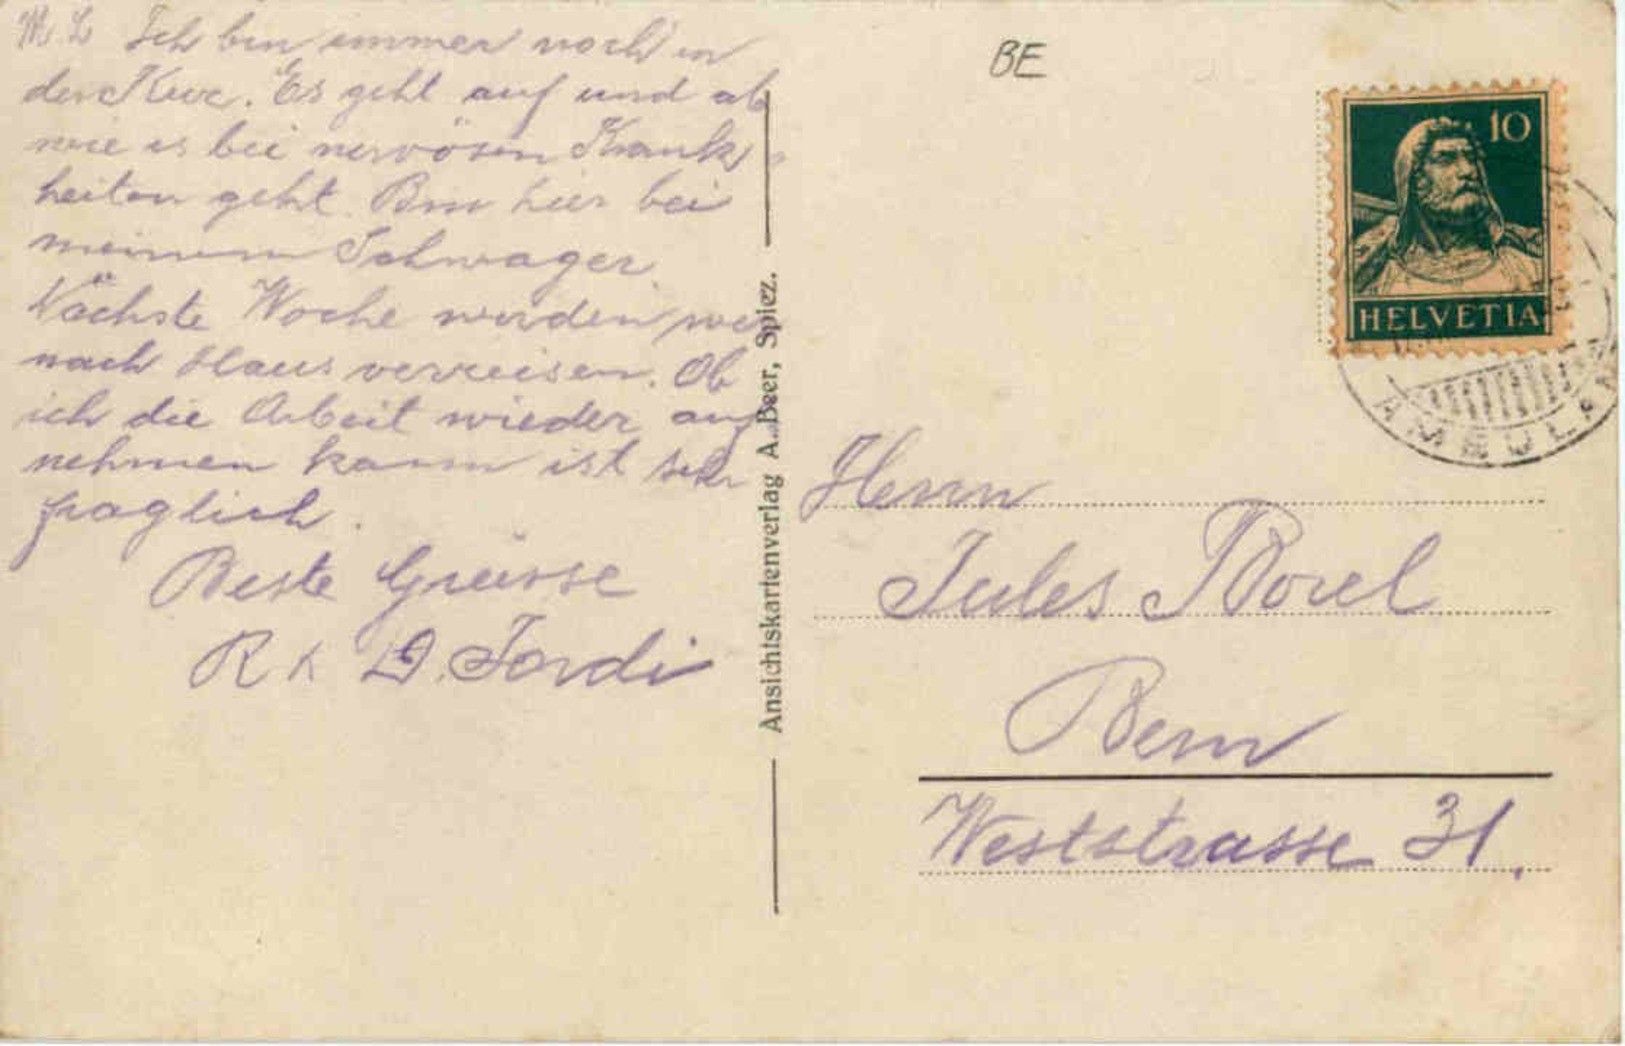 M. L. Ich bin immer noch in
der Kur. Es geht auf und ab
wie es bei nervösen Krank-
heiten geht. Bin hier bei
meinem Schwager.
Nächste Woche werden wir
nach Haus verreisen. Ob
ich die Arbeit wieder auf
nehmen kann ist sehr
fraglich.
Beste Grüsse
R & D. Jordi
Ansichtskartenverlag A. Beer, Spiez.
BE
10
HELVETIA
AMBULAN
Herrn
Jules Borel
Bern
Weststrasse 31.